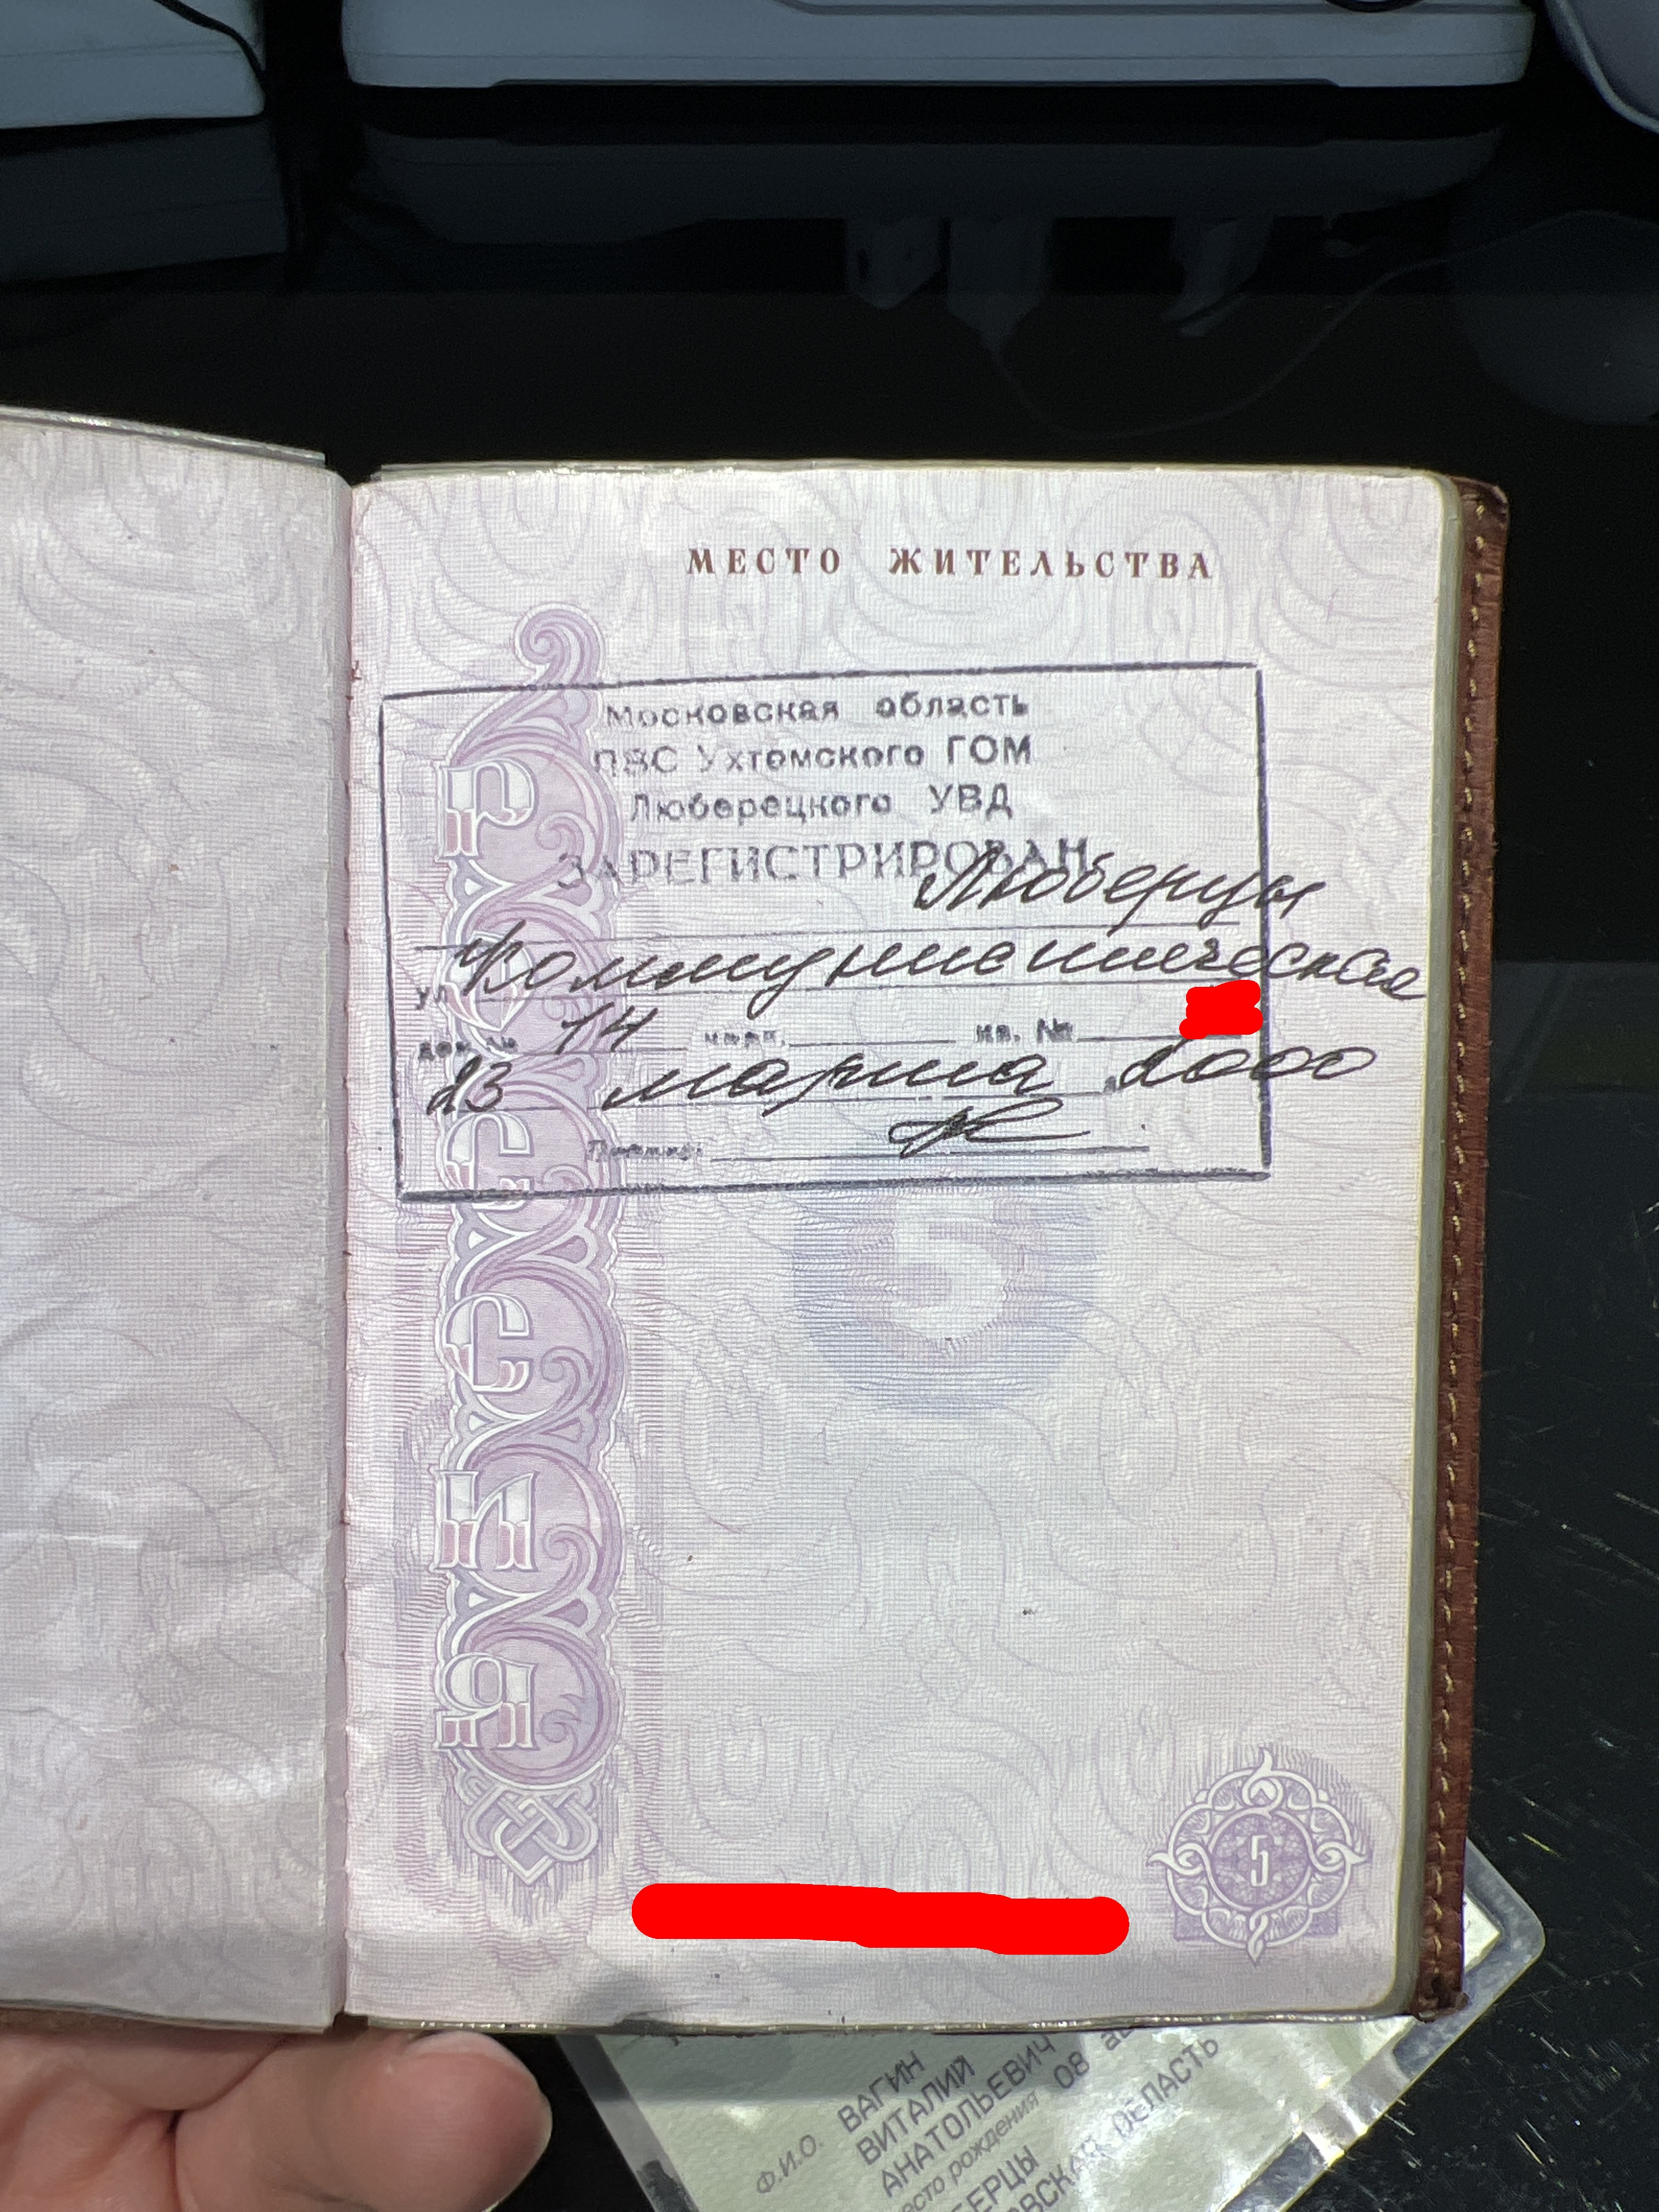 МЕСТО ЖИТЕЛЬСТВА
Московская область
ПВС Ухтомского ГОМ
Люберецкого УВД
ЗАРЕГИСТРИРОВАН
Люберцы
ул. Коммунистическая
дом № 14 корп. кв. №
23 марта 2000
Подпись:
РОССИЯ
5
5
Ф.И.О. ВАГИН
ВИТАЛИЙ
АНАТОЛЬЕВИЧ
место рождения 08
БЕРЦЫ
ОВСКАЯ ОБЛАСТЬ